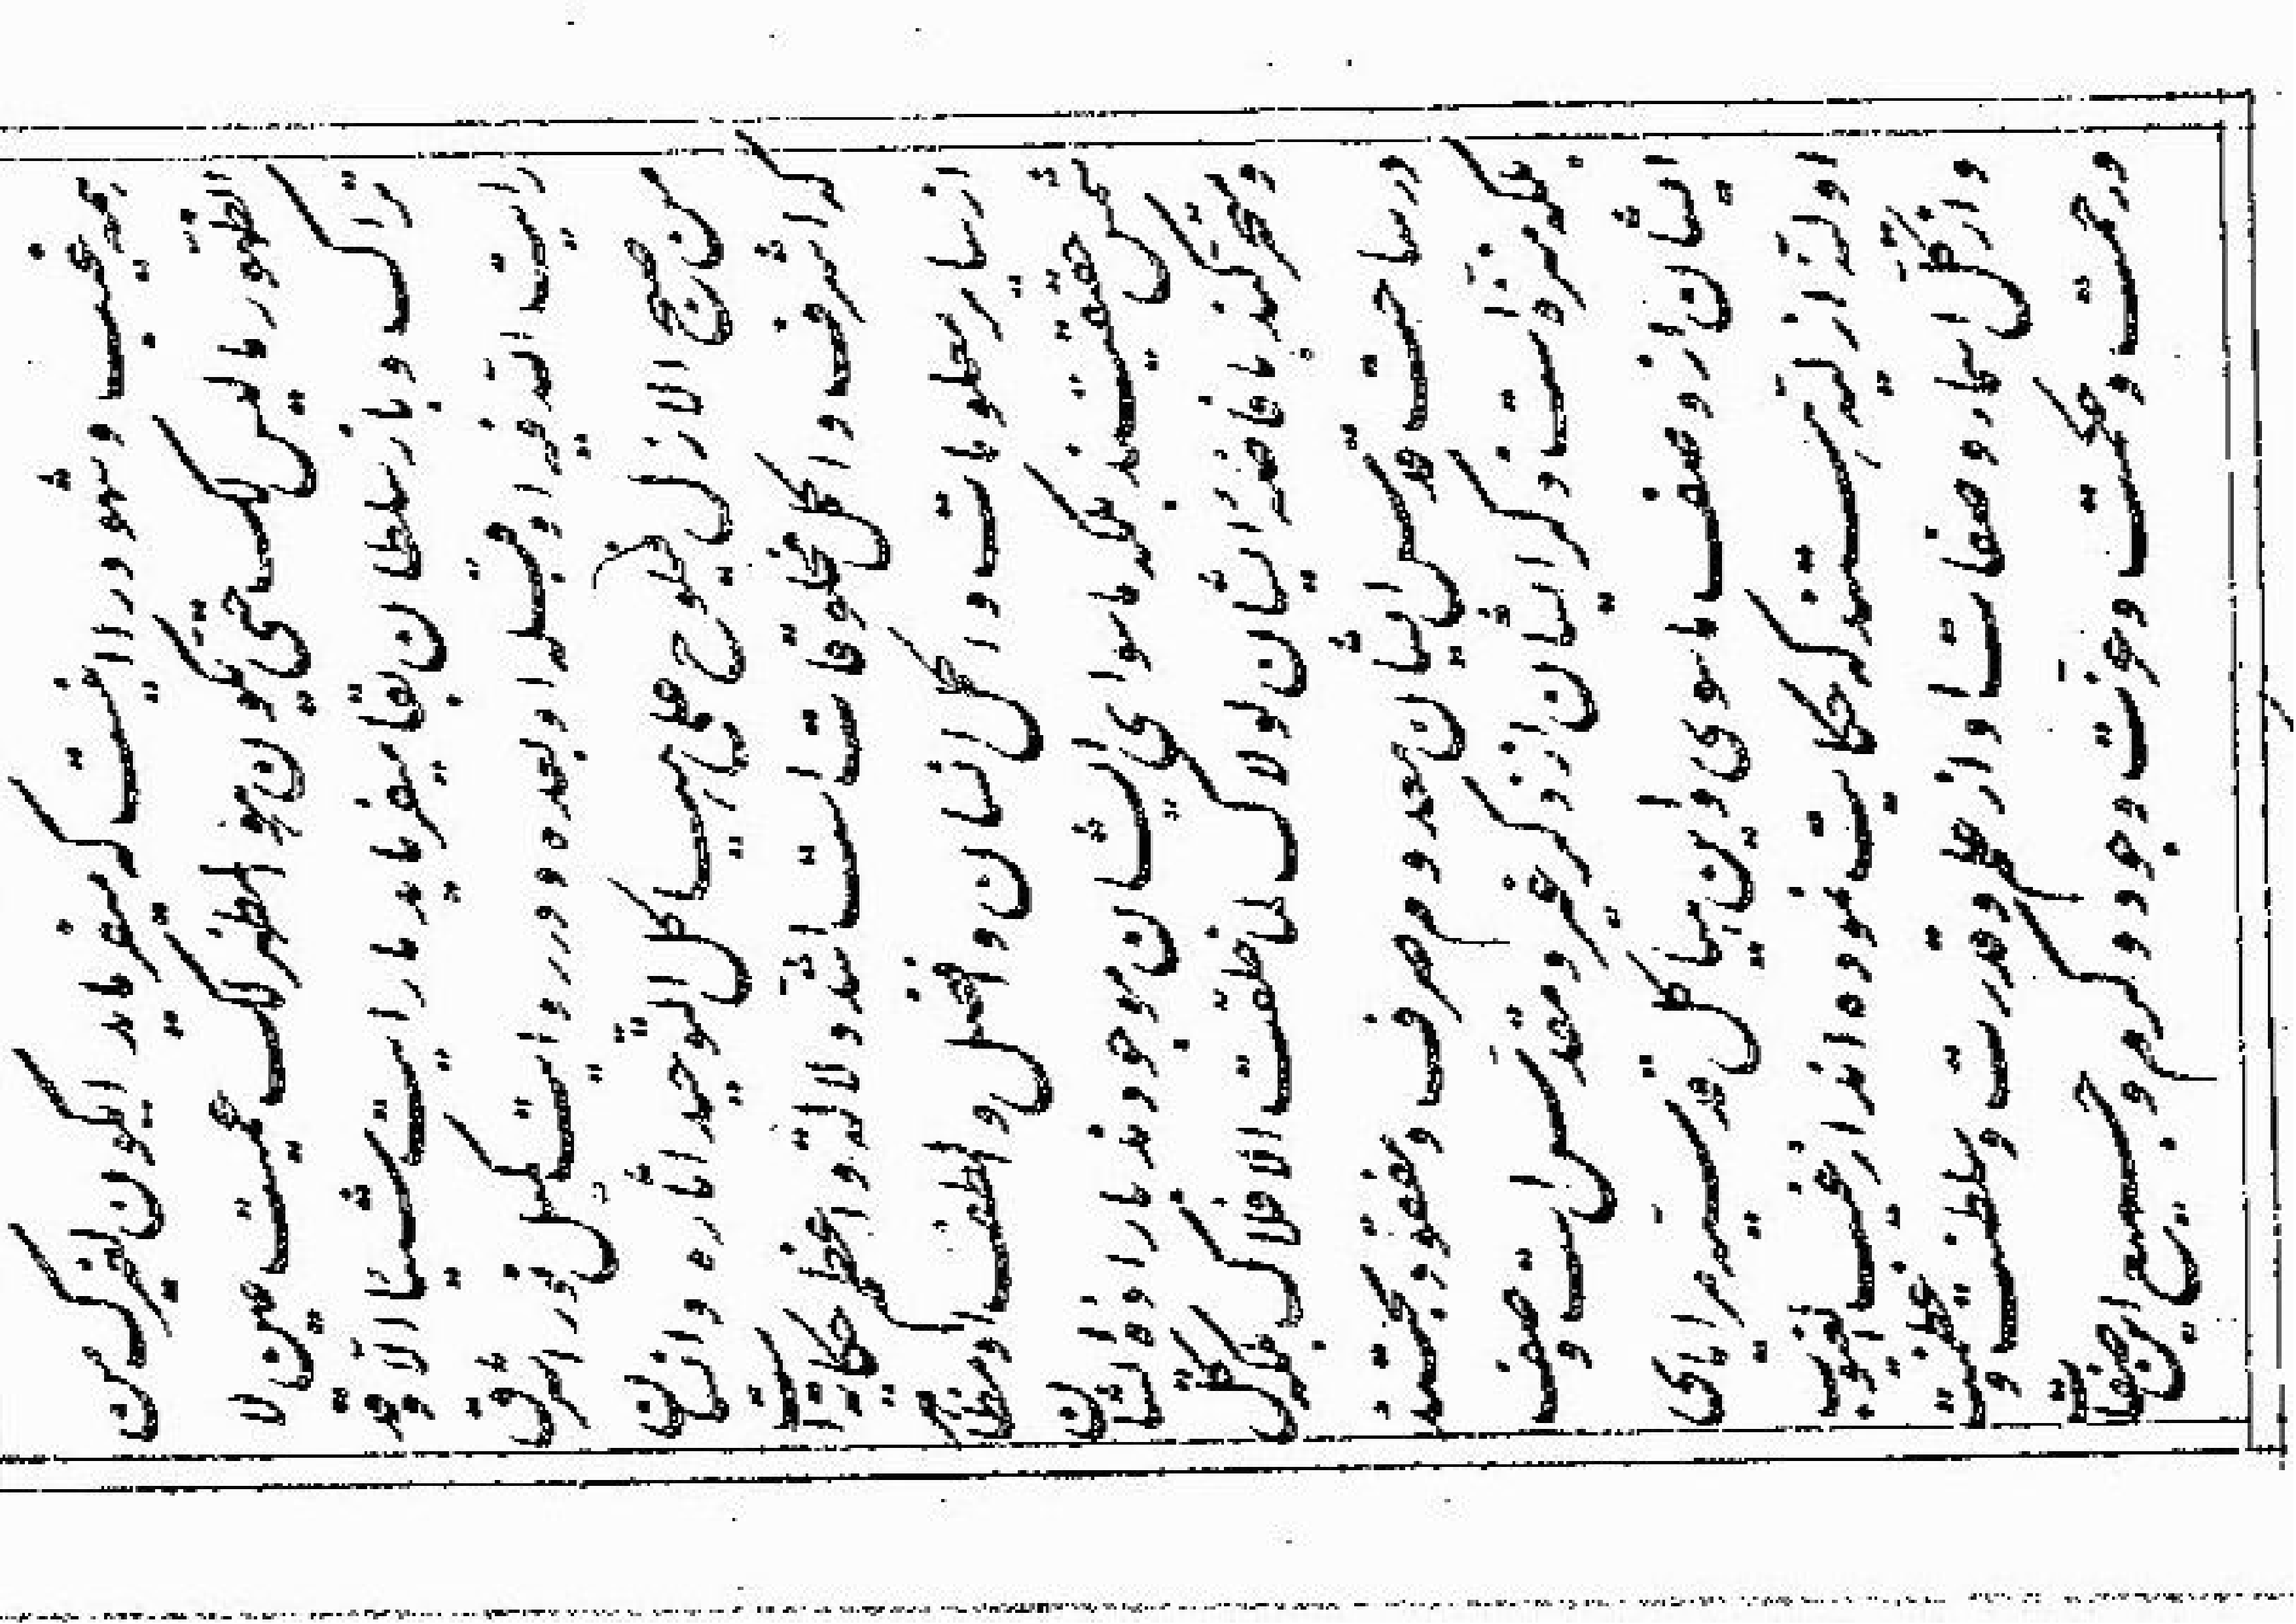 معرفت و شهود را نیست که میفرماید ایکون لغیرک من
الظهور ما لیس لک حتّی یکون هو المظهر لک عمیت عین لا
تراک و باز سلطان بقا میفرماید ما رایت شیئا الا و قد
رایت اللّه فیه او قبله او بعده و در روایت کمیل نور اشرق
من صبح الازل فیلوح علی هیاکل التّوحید اثاره و انسان
که اشرف و اکمل مخلوقات است اشدّ دلالة و اعظم حکایة است
از سایر معلومات و اکمل انسان و افضل و الطف او مظاهر
شمس حقیقتند بلکه ما سوای ایشان موجودند باراده ایشان
و متحرّکند بافاضه ایشان لولاک لما خلقت الافلاک بلکه کلّ
در ساحت قدس ایشان عدم صرف و مفقود بحتند
بلکه منزّه است ذکر ایشان از ذکر غیر و مقدّس است وصف
ایشان از وصف ما سوی و این هیاکل قدسیّه مرایای
اوّلیّه ازلیّه هستند که حکایت نموده اند از غیب الغیوب
و از کلّ اسماء و صفات او از علم و قدرت و سلطنت و عظمت
و رحمت و حکمت و عزّت و جود و کرم و جمیع این صفات